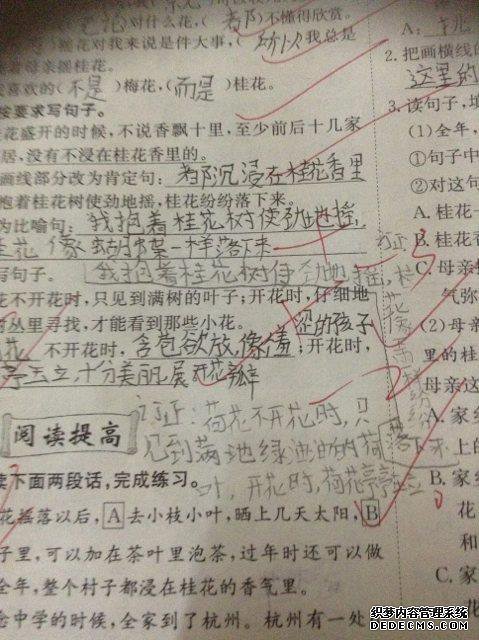 对什么花,(都)不懂得欣赏。
摇花对我来说是件大事,(所以)我总是
着母亲摇桂花。
喜欢的(不是)梅花,(而是)桂花。
按要求写句子。
花盛开的时候,不说香飘十里,至少前后十几家
居,没有不浸在桂花香里的。
画线部分改为肯定句:都沉浸在桂花香里
抱着桂花树使劲地摇,桂花纷纷落下来。
为比喻句:我抱着桂花树使劲地摇,
桂花像一样落下来
写句子。
我抱着桂花树使劲地摇,桂
花不开花时,只见到满树的叶子;开花时,仔细地
丛里寻找,才能看到那些小花。
的孩子
花 不开花时,含苞欲放,像羞;开花时,
亭亭玉立,十分美丽,展开花瓣
订正:荷花不开花时,只
见到满池绿油油的荷
叶,开花时,荷花亭亭玉立
阅读提高
读下面两段话,完成练习。
花摇落以后,A去小枝小叶,晒上几天太阳,B
子里,可以加在茶叶里泡茶,过年时还可以做
全年,整个村子都浸在桂花的香气里。
念中学的时候,全家到了杭州。杭州有一处
A.
2.把画横线的
这里的
3.读句子,填
(1)全年,
①句子中
②对这句
A.桂花一
B.桂花香
C.母亲
气弥
(2)母亲
里的桂
母亲这
A.家
上的
B.家
花
和
C.家
订正
花像雨
纷纷
落下来
织梦内容管理系统
DEDECMS.COM